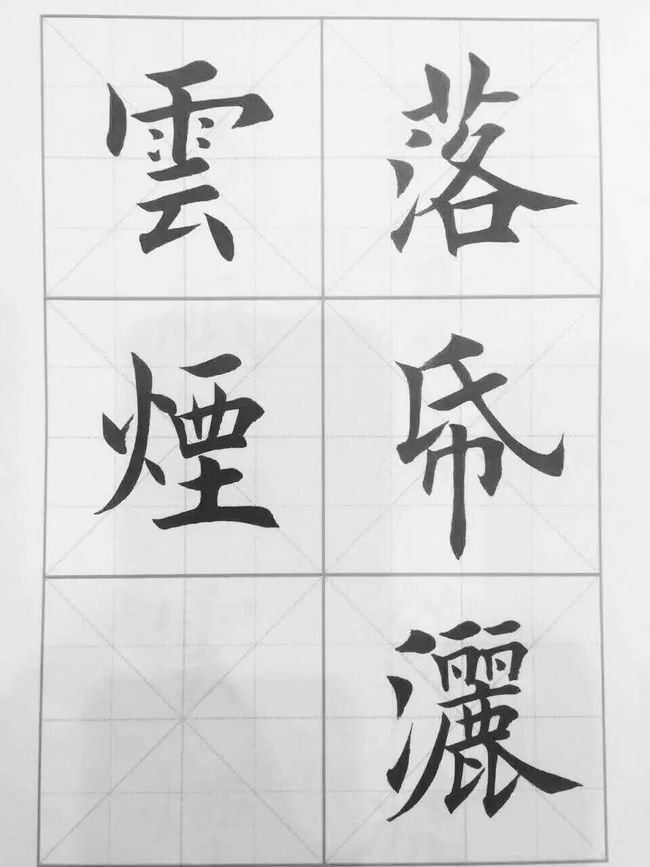 落帋灑
雲煙